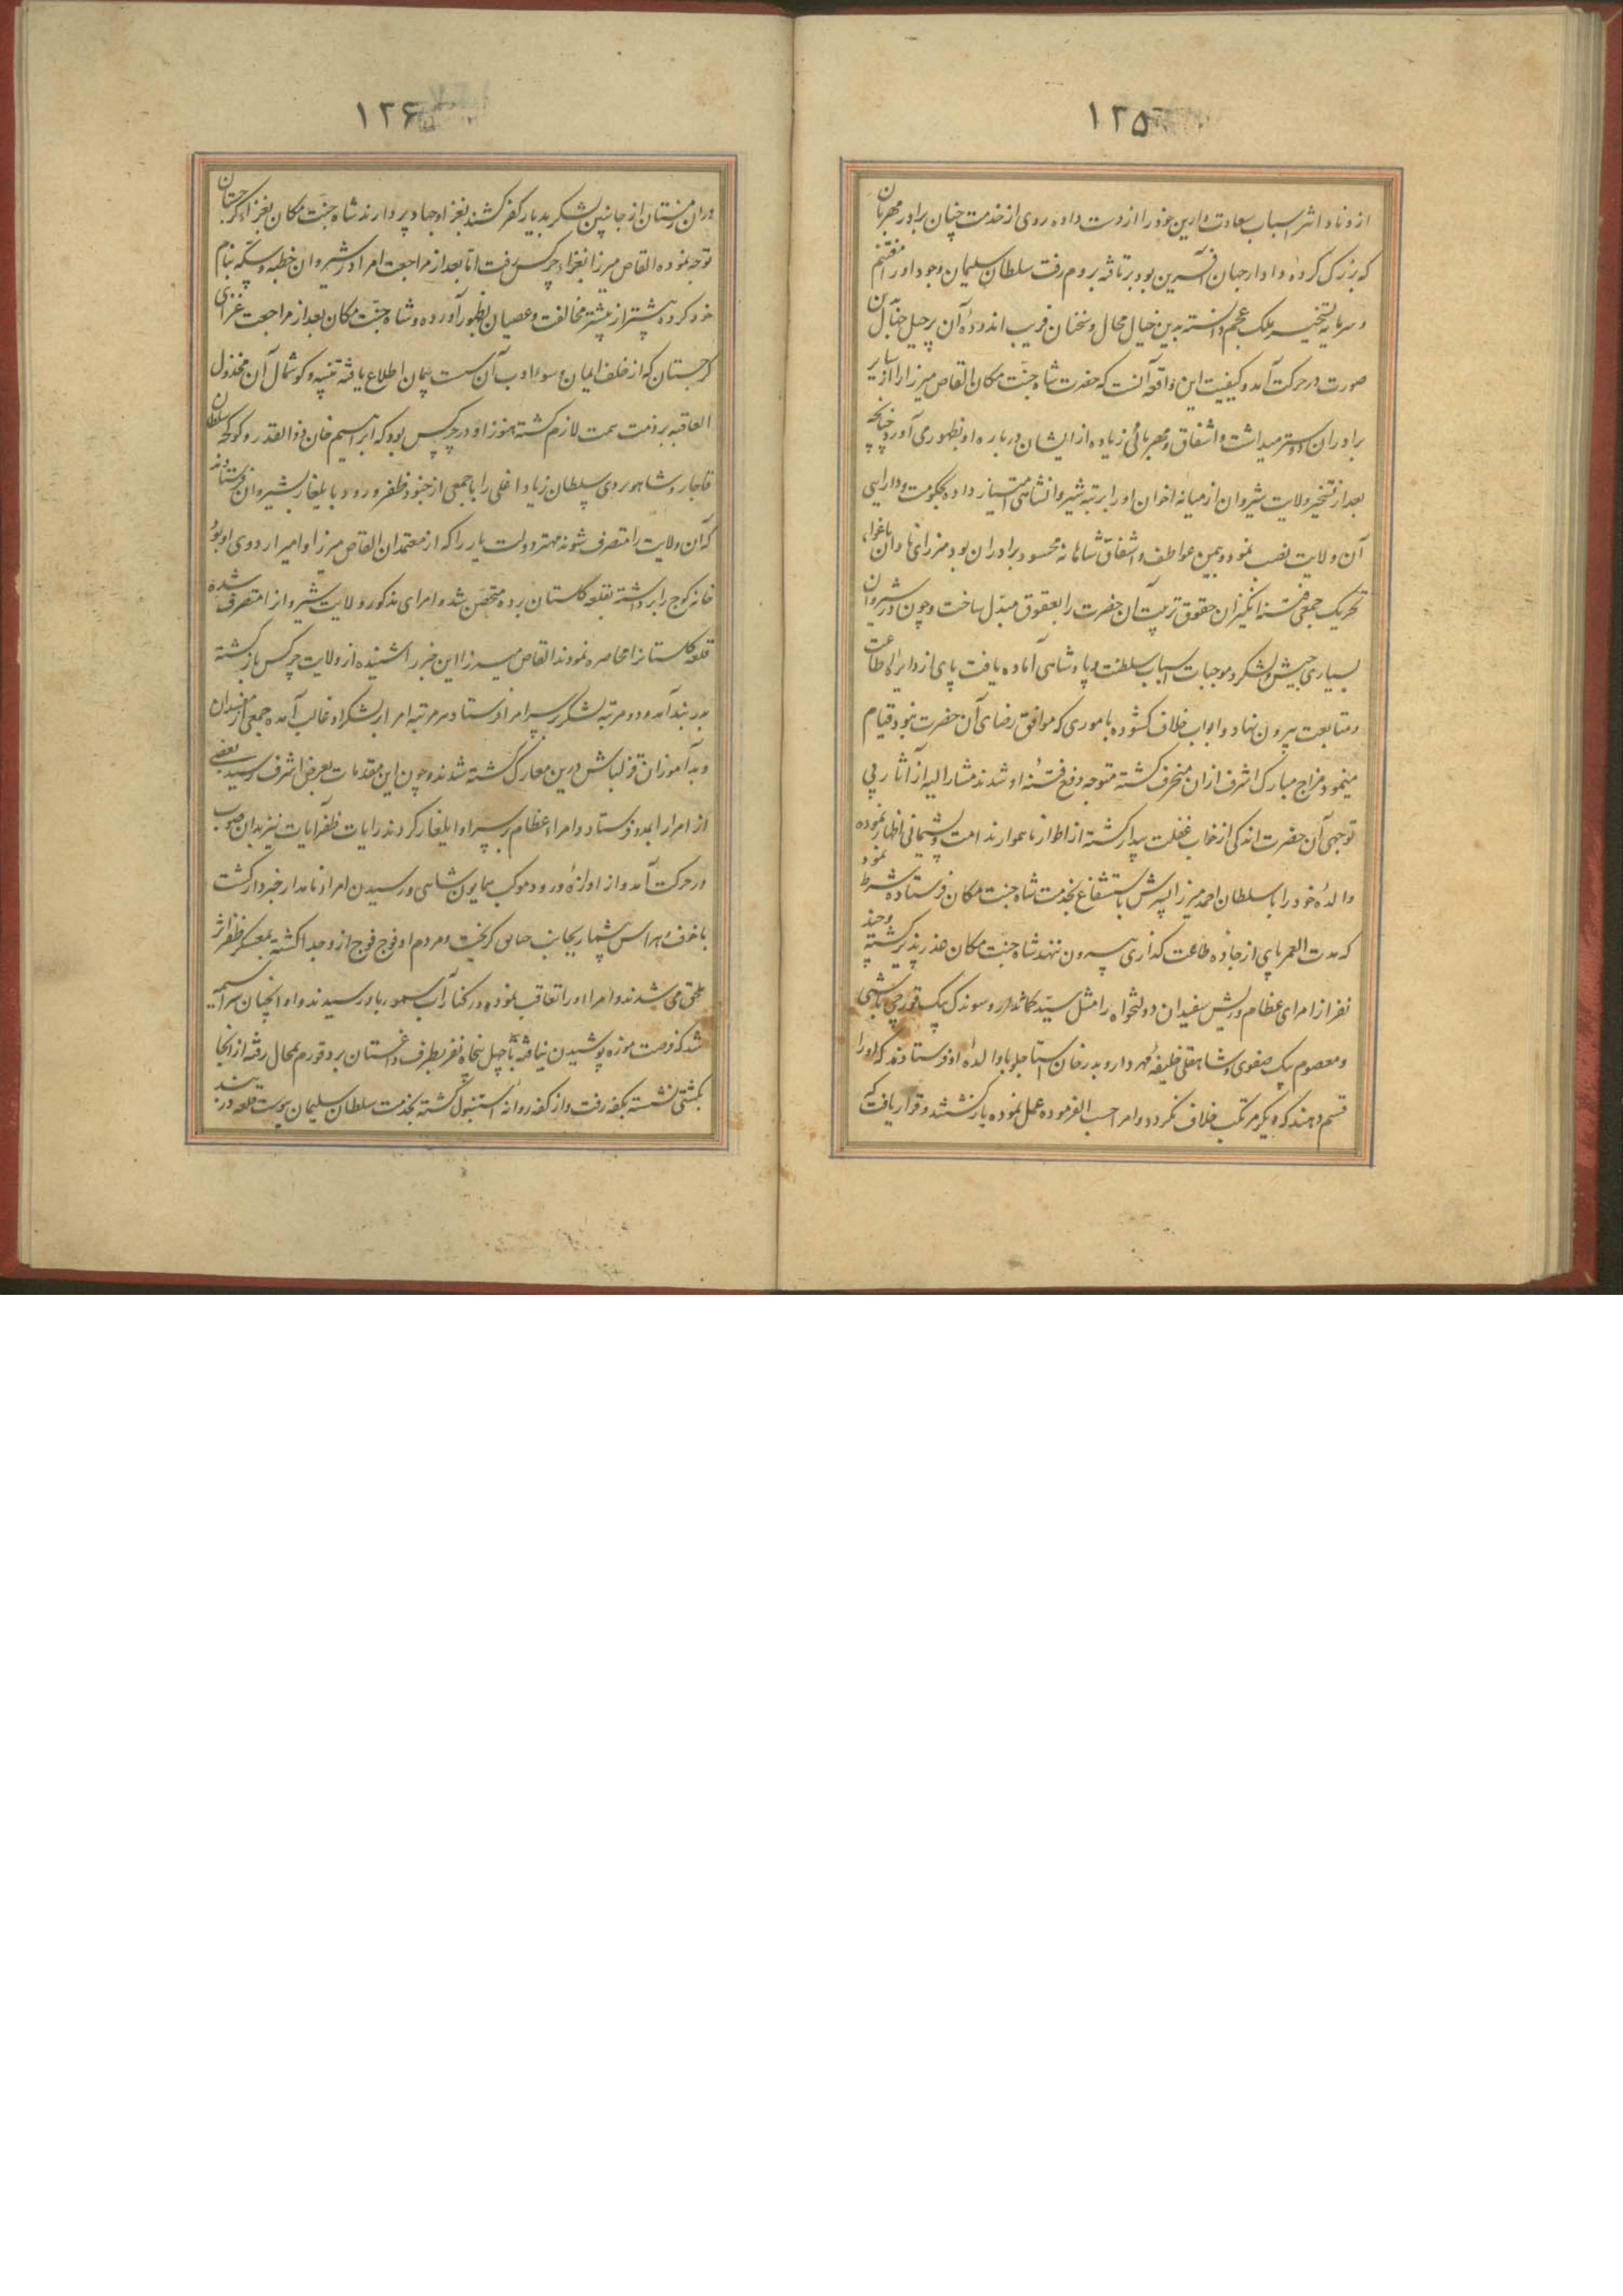 ۱۲۵
از ونا و اثر اسباب سعادت دارین خود را از دست داده روی از خدمت چنان برادر مهربان
که بزرگ کرده دادار جهان آفرین بود برتافته بروم رفت سلطان سلیمان وجود او را مغتنم
و سرمایه تسخیر ملک عجم دانسته بدین خیال محال و سخنان فریب اندوده آن پرحیل
صورت در حرکت آمد و کیفیت این واقعه آنست که حضرت شاه جنت مکان القاص میرزا را از سایر
برادران دوستر میداشت و اشفاق و مهربانی زیاده از ایشان درباره او بظهور می آورد چنانچه
بعد از تسخیر ولایت شیروان از میانه اخوان او را برتبه شیروانشاهی امتیاز داده بحکومت و دارایی
آن ولایت نصب نمود و بمین عواطف و اشفاق شاهانه محسود برادران بود میرزای نادان باغوا،
تحریک جمعی فتنه انگیزان حقوق تربیت آن حضرت را بعقوق مبدل ساخت و چون در شیروان
بسیاری جیش و لشکر و موجبات اسباب سلطنت و پادشاهی آماده یافت پای از دایره اطاعت
و متابعت بیرون نهاد و ابواب خلاف گشوده باموری که موافق رضای آن حضرت نبود قیام
مینمود مزاج مبارک اشرف ازان منحرف گشته متوجه دفع فتنه او شدند مشارالیه از آثار بی
توجهی آن حضرت اندکی از خواب غفلت بیدار گشته از اطوار ناهموار ندامت و پشیمانی اظهار نموده
والده خود را با سلطان احمد میرزا پسرش باستشفاع بخدمت شاه جنت مکان فرستاده شرط نمود
که مدت العمر پای از جاده طاعت گذاری بیرون ننهد شاه جنت مکان عذرپذیر گشته و چند
نفر از امرای عظام و ریش سفیدان دولتخواه را مثل سید و سوندک بیک قورچی باشی
و معصوم بیک صفوی و شاهقلی خلیفه مهردار و بدر خان استاجلو با والده او فرستادند که او را
قسم دهند که دیگر مرتکب خلاف نگردد و امرا حسب الفرموده عمل نموده بازگشتند و قرار یافت که
۱۲۶
دران زمستان از جانبین لشکر بدیار کفر کشند بغزا و جهاد پردازند شاه جنت مکان بغزا، گرجستان
توجه نموده القاص میرزا بغزا، چرکس رفت اما بعد از مراجعت امرا در شیروان خطبه و سکه بنام
خود کرده بیشتر از پیشتر مخالفت و عصیان بظهور آورده و شاه جنت مکان بعد از مراجعت غزای
گرجستان که از خلف ایمان و سوء ادب آن سست پیمان اطلاع یافته تنبیه و گوشمال آن مخذول
العاقبه بر ذمت همت لازم گشته هنوز او در چرکس بود که ابراهیم خان ذوالقدر و کوکجه سلطان
قاجار و شاهوردی سلطان زیاد اغلی را با جمعی از جنود ظفر ورود بایلغار بشیروان فرستادند
که آن ولایت را متصرف شوند مهتر دولت یار را که از معتمدان القاص میرزا و امیر اردوی او بود
خانه کوچ را برداشته بقلعه گلستان برده متحصن شد و امرای مذکور ولایت شیروان را متصرف شده
قلعه گلستان را محاصره نمودند القاص میرزا این خبر را شنیده از ولایت چرکس بازگشته
بدربند آمد و دو مرتبه لشکر بر سر امرا فرستاد و هر مرتبه امرا بر لشکر او غالب آمده جمعی از مفسدان
و بدآموزان قزلباش درین معارک کشته شدند و چون این مقدمات بعرض اشرف رسید بعضی
از امرا را بمدد فرستاد و امراء عظام بر سر او ایلغار کردند رایات ظفرآیات نیز بدان صوب
در حرکت آمد و از اوازه ورود موکب همایون شاهی و رسیدن امراء نامدار خبردار گشت
با خوف و هراس بیشمار بجانب گریخت و مردم او فوج فوج از و جدا گشته بمعسکر ظفر اثر
ملحق می شدند و امرا او را تعاقب نموده در کنار آب سمور باو رسیدند و او آنچنان سراسیمه
شد که فرصت موزه پوشیدن نیافته با چهل پنجاه نفر بطرف داغستان بدر رفته از آنجا
بکشتی نشسته بکفه رفت و از کفه روانه استنبول گشته بخدمت سلطان سلیمان پیوست قلعه دربند